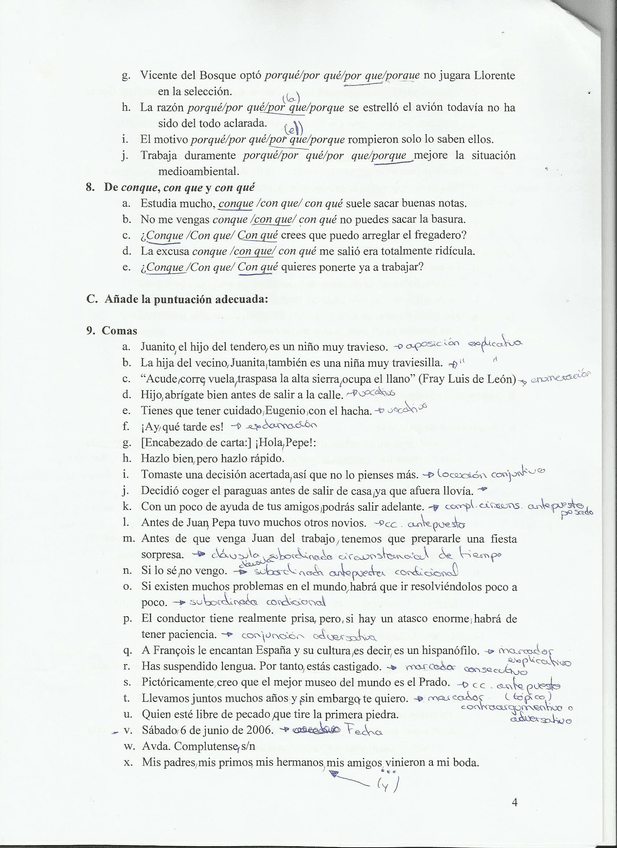 g. Vicente del Bosque optó porqué/por qué/por que/porque no jugara Llorente
en la selección.
(la)
h. La razón porqué/por qué/por que/porque se estrelló el avión todavía no ha
sido del todo aclarada.
(el)
i. El motivo porqué/por qué/por que/porque rompieron solo lo saben ellos.
j. Trabaja duramente porqué/por qué/por que/porque mejore la situación
medioambiental.
8. De conque, con que y con qué
a. Estudia mucho, conque /con que/ con qué suele sacar buenas notas.
b. No me vengas conque /con que/ con qué no puedes sacar la basura.
c. ¿Conque /Con que/ Con qué crees que puedo arreglar el fregadero?
d. La excusa conque /con que/ con qué me salió era totalmente ridícula.
e. ¿Conque /Con que/ Con qué quieres ponerte ya a trabajar?
C. Añade la puntuación adecuada:
9. Comas
a. Juanito, el hijo del tendero, es un niño muy travieso. → aposición explicativa
b. La hija del vecino, Juanita, también es una niña muy traviesilla. → " "
c. “Acude, corre, vuela, traspasa la alta sierra, ocupa el llano” (Fray Luis de León) → enumeración
d. Hijo, abrígate bien antes de salir a la calle. → vocativo
e. Tienes que tener cuidado, Eugenio, con el hacha. → vocativo
f. ¡Ay, qué tarde es! → exclamación
g. [Encabezado de carta:] ¡Hola, Pepe!:
h. Hazlo bien, pero hazlo rápido.
i. Tomaste una decisión acertada, así que no lo pienses más. → locución conjuntiva
j. Decidió coger el paraguas antes de salir de casa, ya que afuera llovía. →
k. Con un poco de ayuda de tus amigos, podrás salir adelante. → compl. circuns. antepuesto
pesado
l. Antes de Juan, Pepa tuvo muchos otros novios. → cc. antepuesto
m. Antes de que venga Juan del trabajo, tenemos que prepararle una fiesta
sorpresa. → cláusula subordinada circunstancial de tiempo
n. Si lo sé, no vengo. → subordinada antepuesta condicional
o. Si existen muchos problemas en el mundo, habrá que ir resolviéndolos poco a
poco. → subordinada condicional
p. El conductor tiene realmente prisa, pero, si hay un atasco enorme, habrá de
tener paciencia. → conjunción adversativa
q. A François le encantan España y su cultura, es decir, es un hispanófilo. → marcador
explicativo
r. Has suspendido lengua. Por tanto, estás castigado. → marcador consecutivo
s. Pictóricamente, creo que el mejor museo del mundo es el Prado. → cc. antepuesto
(tópico)
t. Llevamos juntos muchos años y, sin embargo, te quiero. → marcador
contraargumentivo o
adversativo
u. Quien esté libre de pecado, que tire la primera piedra.
v. Sábado, 6 de junio de 2006. → Fecha
w. Avda. Complutense, s/n
x. Mis padres, mis primos, mis hermanos, mis amigos, vinieron a mi boda.
(y) ...
4